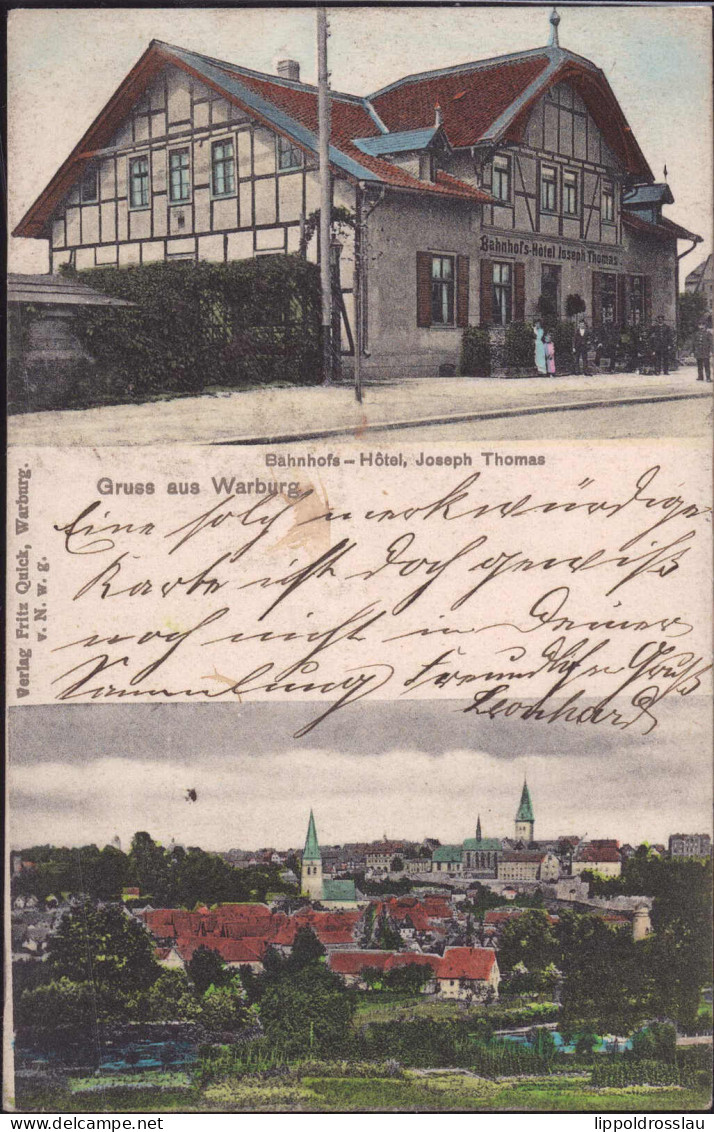 Bahnhofs-Hôtel Joseph Thomas
Bahnhofs-Hôtel, Joseph Thomas
Gruss aus Warburg.
Verlag Fritz Quick, Warburg.
v. N. w. g.
Eine solch merkwürdige
Karte ist doch gewiß
noch nicht in Deiner
Sammlung Freundlichen Gruß
Leonhard
lippoldrosslau